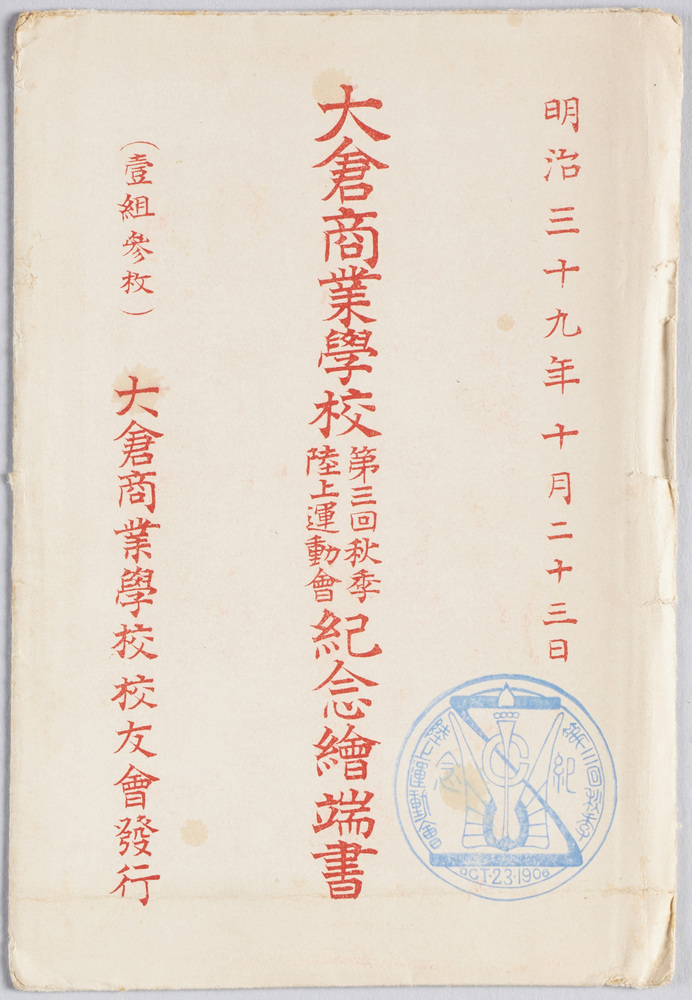 明治三十九年十月二十三日
大倉商業學校
第三回秋季
陸上運動會
紀念繪端書
(壹組參枚)
大倉商業學校校友會發行
第三回秋季
陸上運動會
紀念
OCT·23·1906